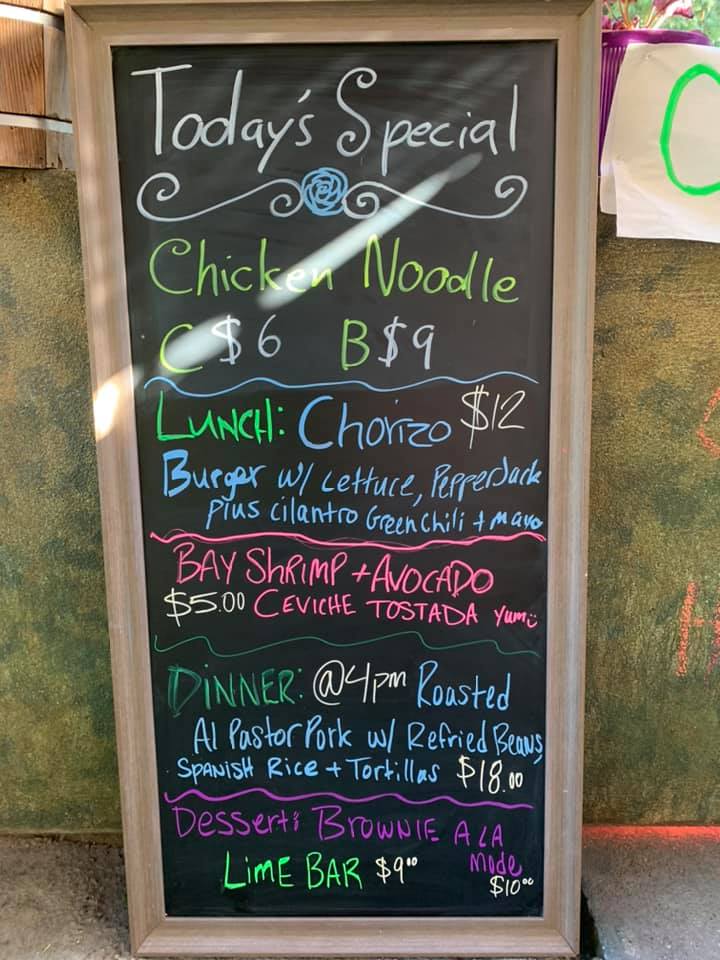 Today's Special
Chicken Noodle
C $6 B $9
LUNCH: Chorizo $12
Burger w/ Lettuce, PepperJack
plus cilantro Green Chili + mayo
BAY SHRIMP + AVOCADO
$5.00 CEVICHE TOSTADA Yum
DINNER: @4pm Roasted
Al Pastor Pork w/ Refried Beans,
SPANISH Rice + Tortillas $18.00
Dessert: BROWNIE A LA
Mode
LIME BAR $9.00 $10.00